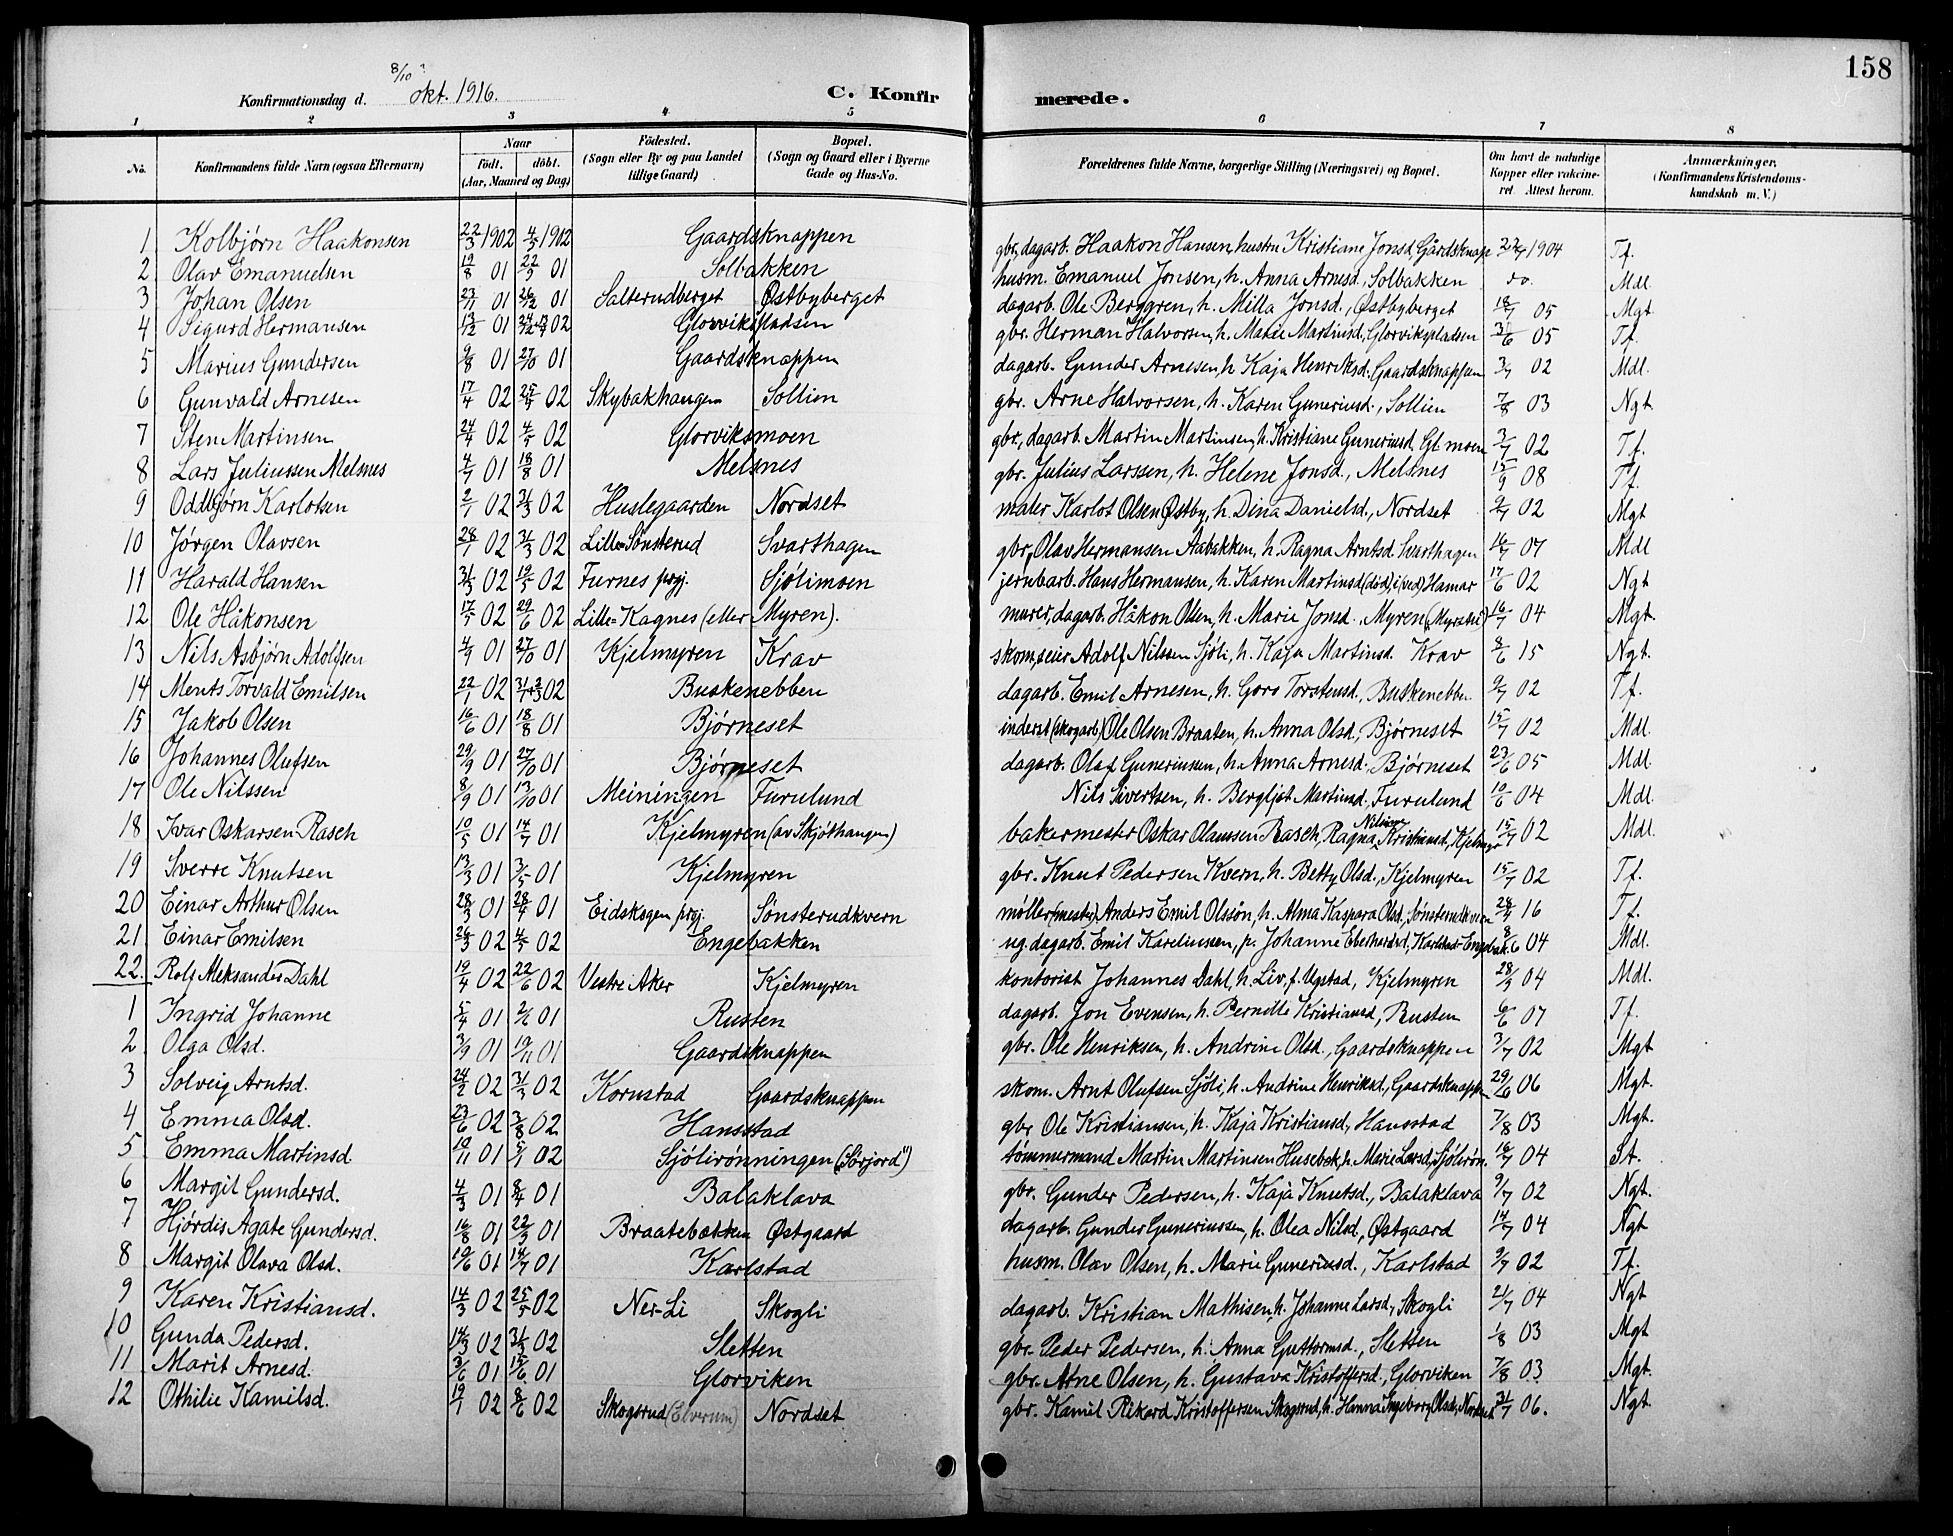 158
8/10 ?
Konfirmationsdag d. okt. 1916. C. Konfirmerede.
1 2 3 4 5 6 7 8
No. Konfirmandens fulde Navn (ogsaa Efternavn) Naar födt. döbt. (Aar, Maaned og Dag) Födested. (Sogn eller By og paa Landet tillige Gaard) Bopæl. (Sogn og Gaard eller i Byerne Gade og Hus-No. Forældrenes fulde Navne, borgerlige Stilling (Næringsvei) og Bopæl. Om havt de naturlige Kopper eller vakcineret. Attest herom. Anmærkninger, (Konfirmandens Kristendomskundskab m. V.)
1 Kolbjørn Haakonsen 22/3 1902 4/5 1902 Gaardsknappen gbr, dagarb. Haakon Hansen, hustru Kristiane Jonsd, Gårdsknapp 1904 Tf.
2 Olav Emanuelsen 19/8 01 22/9 01 Solbakken husm. Emanuel Jonsen, h. Anna Arnesd, Solbakken do. Mdl.
3 Johan Olsen 23/1 01 26/12 01 Salterudberget Østbyberget dagarb. Ole Berggren, h. Milla Jonsd., Østbyberget 18/7 05 Mgt.
4 Sigurd Hermansen 13/12 01 02 Glorvikspladsen gbr. Herman Halvorsen, h. Marie Martinsd, Glorvikspladsen 3/6 05 Tf.
5 Marius Gundersen 9/8 01 27/10 01 Gaardsknappen dagarb. Gunder Arnesen, h. Kaja Henriksd. Gaardsknappen 3/7 02 Mdl.
6 Gunvald Arnesen 17/4 02 25/5 02 Skybakhaugen Sollien gbr. Arne Halvorsen, h. Karen Guneriusd., Sollien 7/8 03 Ngt.
7 Sten Martinsen 24/4 02 4/5 02 Glorviksmoen gbr, dagarb. Martin Martinsen, h. Kristiane Guneriusd. Gl. moen 3/7 02 Tf.
8 Lars Juliussen Melsnes 4/7 01 18/8 01 Melsnes gbr. Julius Larssen, h. Helene Jonsd., Melsnes 15/9 08 Tf.
9 Oddbjørn Karlotsen 2/1 02 31/3 02 Huslegaarden Nordset maler Karlot Olsen Østby, h. Dina Danielsd., Nordset 9/7 02 Mgt
10 Jørgen Olavsen 28/1 02 31/3 02 Lille-Sønsterud Svarthagen gbr, Olav Hermansen Aabakken, h. Ragna Arntsd Svarthagen 16/7 07 Mdl
11 Harald Hansen 31/3 02 19/5 02 Furnes prgj. Sjölimoen jernbarb. Hans Hermansen, h. Karen Martinsd (död), Hamar 17/6 02 Ngt
12 Ole Håkonsen 17/5 02 29/6 02 Lille-Kagnes (eller Myren). murer, dagarb. Håkon Olsen, h. Marie Jonsd., Myren 16/7 04 Mgt.
13 Nils Asbjørn Adolfsen 4/9 01 27/10 01 Kjelmyren Krav skom, seier Adolf Nilssen Sjöli, h. Kaja Martinsd. Krav 8/6 15 Ngt.
14 Ments Torvald Emilsen 22/1 02 02 Buskenebben dagarb. Emil Arnesen, h. Goro Torstensd., Buskenebben 9/7 02 Tf.
15 Jakob Olsen 16/6 01 18/8 01 Bjørneset inderst (skogarb.) Ole Olsen Braaten, h. Anna Olsd., Bjørneset 15/7 02 Mdl.
16 Johannes Olufsen 29/9 01 27/10 01 Bjørneset dagarb. Olaf Gunerinssen, h. Anna Arnesd. Bjørneset 23/6 05 Mdl.
17 Ole Nilssen 8/9 01 13/10 01 Meiningen Furulund Nils Sivertsen, h. Bergljot Martinsd., Furulund 10/6 04 Mdl.
18 Ivar Oskarsen Rasch 10/5 01 14/7 01 Kjelmyren (av Skjöthaugen) bakermester Oskar Olaussen Rasch, Ragna Nilsine Kristiansd, Kjelmyr 15/7 02 Mdl.
19 Sverre Knutsen 13/3 01 3/5 01 Kjelmyren gbr. Knut Pedersen Kvern, h. Betty Olsd., Kjelmyren 15/7 02 Tf.
20 Einar Arthur Olsen 28/3 01 28/4 01 Eidskogen prgj. Sönsterudkvern møller(mester) Anders Emil Olssön, h. Alma Kaspara Olsd., Sønsterudkvern 28/4 16 Tf.
21 Einar Emilsen 26/3 02 4/5 02 Engebakken ug. dagarb. Emil Kareliussen, p. Johanne Eberhardsd, Karlstad-Engebak. 8/6 04 Mdl.
22. Rolf Aleksander Dahl 19/4 02 22/6 02 Vestre Aker Kjelmyren kontorist Johannes Dahl, h. Liv, f. Ugstad, Kjelmyren 28/3 04 Mdl.
1 Ingrid Johanne 5/4 01 2/6 01 Rusten dagarb. Jon Evensen, h. Pernelle Kristiansd, Rusten 6/6 07 Tf.
2 Olga Olsd. 3/9 01 19/11 01 Gaardsknappen gbr. Ole Henriksen, h. Andrine Olsd., Gaardsknappen 3/7 02 Mgt
3 Solveig Arntsd. 24/2 02 31/3 02 Kornstad Gaardsknappen skom. Arnt Olufsen Sjöli, h. Andrine Henriksd, Gaardsknappen 29/6 06 Mgt.
4 Emma Olsd. 23/6 02 3/8 02 Hansstad gbr Ole Kristiansen, h. Kaja Kristiansd, Hansstad 7/8 03 Mgt.
5 Emma Martinsd. 19/11 01 5/1 02 Sjölirönningen ("Sörjord") tömmermand Martin Martinsen Husebek, h. Marie Larsd, Sjölirön. 16/7 04 St.
6 Margit Gundersd. 4/3 01 8/4 01 Balaklava gbr. Gunder Pedersen, h. Kaja Knutsd., Balaklava 9/7 02 Ngt.
7 Hjördis Agate Gundersd. 16/8 01 22/9 01 Braatebakken Østgaard dagarb. Gunder Guneriussen, h. Olea Nilsd, Østgaard 14/7 04 Ngt
8 Margit Olava Olsd. 19/6 01 14/7 01 Karlstad husm. Olav Olsen, h. Marie Guneriusd., Karlstad 9/7 02 Tf.
9 Karen Kristiansd. 14/3 02 25/5 02 Ner-Li Skogli dagarb. Kristian Mathisen, h. Johanne Larsd, Skogli 21/7 04 Ngt
10 Gunda Pedersd. 14/3 02 31/3 02 Sletten gbr. Peder Pedersen, h. Anna Guttormsd., Sletten 1/8 03 Mgt
11 Marit Arnesd. 3/6 01 15/6 01 Glorviken gbr. Arne Olsen, h. Gustava Kristoffersd., Glorviken 7/8 03 Mgt.
12 Othilie Kamilsd. 19/1 02 8/6 02 Skogsrud (Elverum) Nordset gbr. Kamil Rikard Kristoffersen Skogsrud, h. Hanna Ingeborg Olsd., Nordset 31/7 06. Ngt.